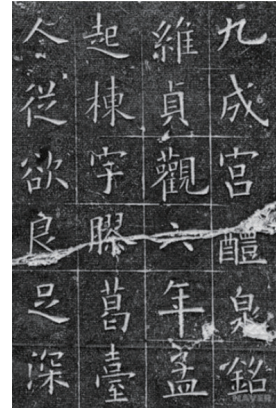 九成宮醴泉銘
維貞觀六年孟
起棟宇膠葛臺
人從欲良足深
NAVER